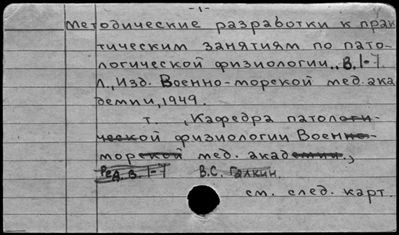 - 1 -
Методические разработки к прак
тическим занятиям по пато-
логической физиологии., В. 1-7
Л., Изд. Военно-морской мед. ака
демии, 1949.
т. , Кафедра патологи-
ческой физиологии Военно-
морской мед. академии.,
Ред. В. 1-7 В.С. Галкин.
см. след. карт.